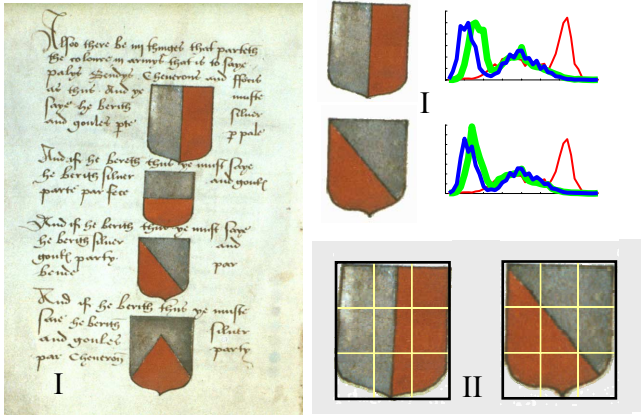 Also there be iiij thinges that parteth
the coloure in armys that is to saye
palys Bendys Cheuerons and ffous
as thus And ye muste
saye he berith siluer
and goules pte p pale
And if he bereth thus ye must saye
he berith siluer and goul
parte par fece
And if he bereth thus ye must saye
he berith siluer and
goul party par
bende
And if he berth thus ye muste
saie he berth siluer
and goules party
par Cheueron
I
I
II